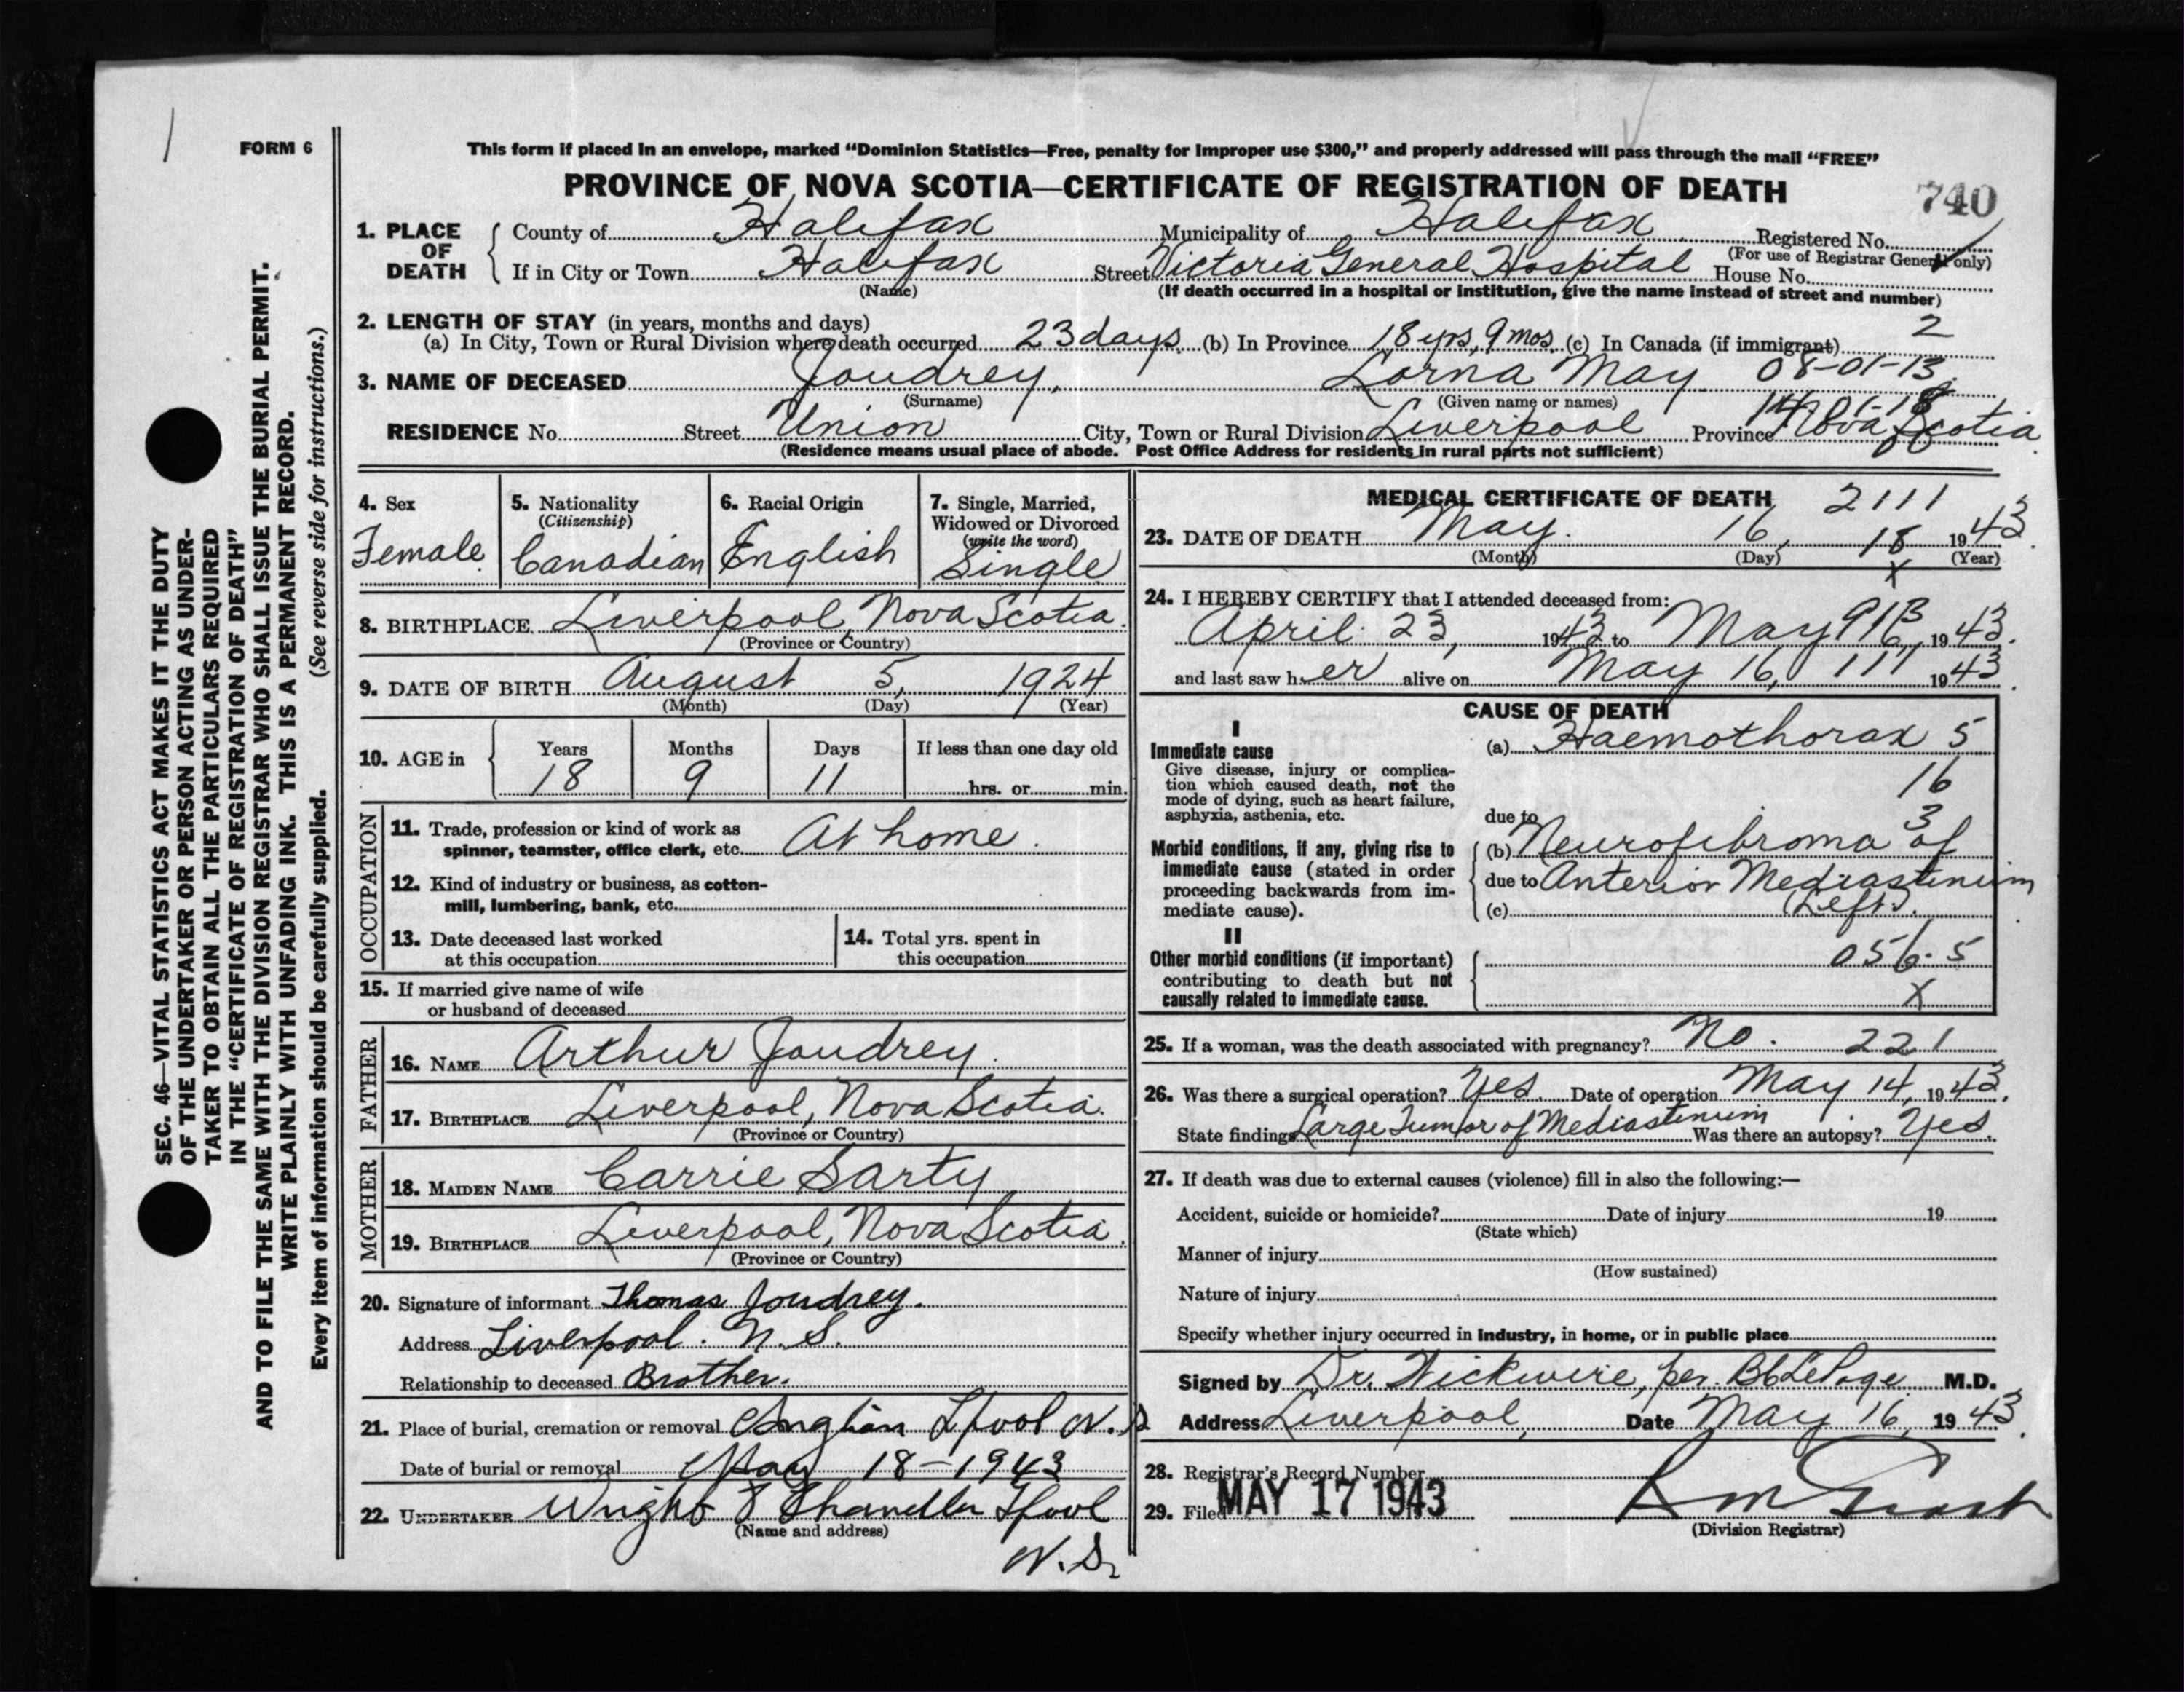 FORM 6
This form if placed in an envelope, marked “Dominion Statistics—Free, penalty for improper use $300,” and properly addressed will pass through the mail “FREE”
PROVINCE OF NOVA SCOTIA—CERTIFICATE OF REGISTRATION OF DEATH
740
1. PLACE OF DEATH
County of Halifax Municipality of Halifax Registered No.
(For use of Registrar General only)
If in City or Town Halifax Street Victoria General Hospital House No.
(Name) (If death occurred in a hospital or institution, give the name instead of street and number)
2. LENGTH OF STAY (in years, months and days)
(a) In City, Town or Rural Division where death occurred 23 days (b) In Province 18 yrs, 9 mos. (c) In Canada (if immigrant) 2
3. NAME OF DECEASED Joudrey, Lorna May 08-01-13
(Surname) (Given name or names)
RESIDENCE No. Street Union City, Town or Rural Division Liverpool Province Nova Scotia
(Residence means usual place of abode. Post Office Address for residents in rural parts not sufficient)
4. Sex
Female
5. Nationality
(Citizenship)
Canadian
6. Racial Origin
English
7. Single, Married,
Widowed or Divorced
(write the word)
Single
8. BIRTHPLACE Liverpool, Nova Scotia.
(Province or Country)
9. DATE OF BIRTH August 5, 1924
(Month) (Day) (Year)
10. AGE in
Years Months Days If less than one day old
18 9 11 hrs. or min.
OCCUPATION
11. Trade, profession or kind of work as
spinner, teamster, office clerk, etc. At home.
12. Kind of industry or business, as cotton-
mill, lumbering, bank, etc.
13. Date deceased last worked
at this occupation
14. Total yrs. spent in
this occupation
15. If married give name of wife
or husband of deceased
FATHER
16. NAME Arthur Joudrey.
17. BIRTHPLACE Liverpool, Nova Scotia.
(Province or Country)
MOTHER
18. MAIDEN NAME Carrie Sarty
19. BIRTHPLACE Liverpool, Nova Scotia.
(Province or Country)
20. Signature of informant Thomas Joudrey.
Address Liverpool. N.S.
Relationship to deceased Brother.
21. Place of burial, cremation or removal Lpool N.S
Date of burial or removal May 18-1943
22. UNDERTAKER Wright & Chandler Lpool
(Name and address)
N.S.
MEDICAL CERTIFICATE OF DEATH 2111
23. DATE OF DEATH May. 16, 18 1943.
(Month) (Day) (Year)
x
24. I HEREBY CERTIFY that I attended deceased from:
April 23, 1943 to May 16, 1943.
and last saw her alive on May 16, 111 1943.
CAUSE OF DEATH
I
Immediate cause
Give disease, injury or complica-
tion which caused death, not the
mode of dying, such as heart failure,
asphyxia, asthenia, etc.
(a) Haemothorax 5
16
due to 3
Morbid conditions, if any, giving rise to
immediate cause (stated in order
proceeding backwards from im-
mediate cause).
(b) Neurofibroma of
due to Anterior Mediastinum
(c) (Left).
II
Other morbid conditions (if important)
contributing to death but not
causally related to immediate cause.
056.5
X
25. If a woman, was the death associated with pregnancy? No. 221
26. Was there a surgical operation? Yes. Date of operation May 14, 1943.
State findings Large Tumor of Mediastinum Was there an autopsy? Yes.
27. If death was due to external causes (violence) fill in also the following:—
Accident, suicide or homicide? Date of injury 19
(State which)
Manner of injury
(How sustained)
Nature of injury
Specify whether injury occurred in industry, in home, or in public place
Signed by Dr. Wickwire, per. LePage M.D.
Address Liverpool, Date May 16, 1943.
28. Registrar's Record Number
29. Filed MAY 17 1943
(Division Registrar)
SEC. 46—VITAL STATISTICS ACT MAKES IT THE DUTY
OF THE UNDERTAKER OR PERSON ACTING AS UNDER-
TAKER TO OBTAIN ALL THE PARTICULARS REQUIRED
IN THE “CERTIFICATE OF REGISTRATION OF DEATH”
AND TO FILE THE SAME WITH THE DIVISION REGISTRAR WHO SHALL ISSUE THE BURIAL PERMIT.
WRITE PLAINLY WITH UNFADING INK. THIS IS A PERMANENT RECORD.
Every item of information should be carefully supplied. (See reverse side for instructions.)